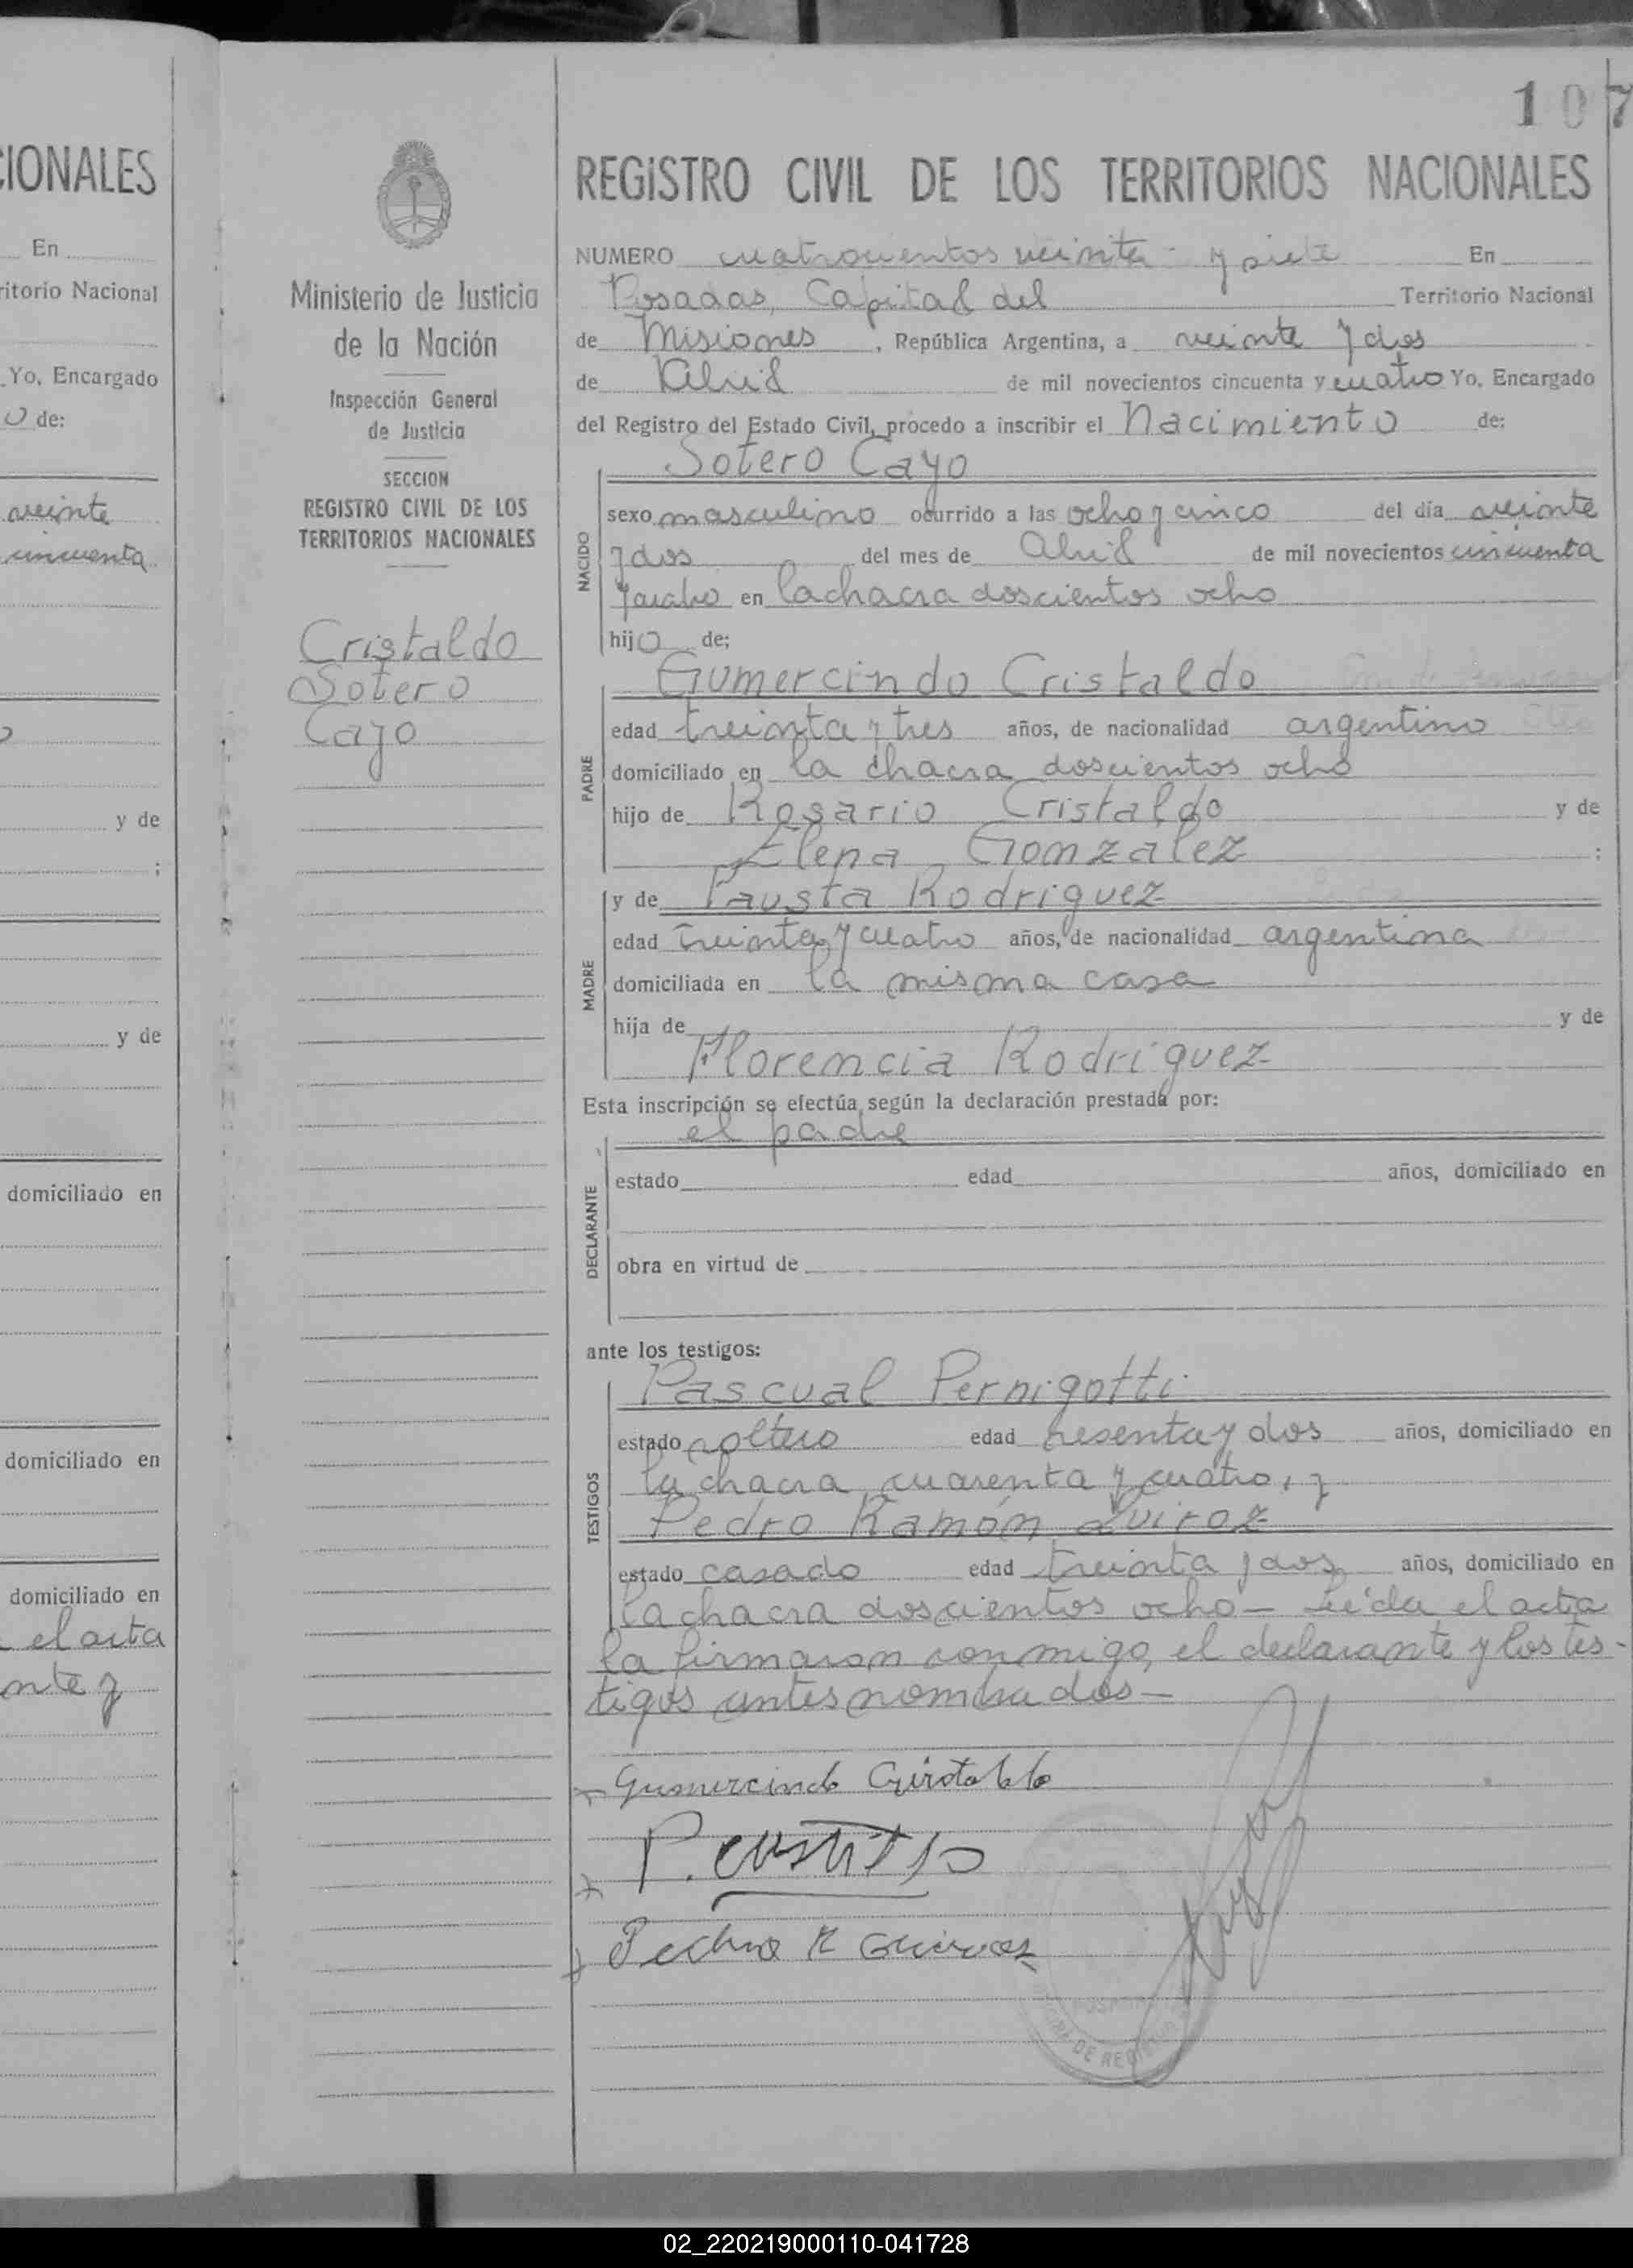 CIONALES
En
ritorio Nacional
Yo, Encargado
o de:
veinte
cincuenta
y de
;
y de
domiciliado en
domiciliado en
domiciliado en
el acta
nte y
107
Ministerio de Justicia
de la Nación
Inspección General
de Justicia
SECCION
REGISTRO CIVIL DE LOS
TERRITORIOS NACIONALES
Cristaldo
Sotero
Cayo
REGISTRO CIVIL DE LOS TERRITORIOS NACIONALES
NUMERO cuatrocientos veinte y siete En
Posadas, Capital del Territorio Nacional
de Misiones, República Argentina, a veinte y dos
de Abril de mil novecientos cincuenta y cuatro Yo, Encargado
del Registro del Estado Civil, procedo a inscribir el Nacimiento de:
Sotero Cayo
NACIDO
sexo masculino ocurrido a las ocho y cinco del día veinte
y dos del mes de Abril de mil novecientos cincuenta
y cuatro en la chacra doscientos ocho
hijo de;
Gumercindo Cristaldo
PADRE
edad treinta y tres años, de nacionalidad argentino
domiciliado en la chacra doscientos ocho
hijo de Rosario Cristaldo y de
Elena Gonzalez ;
y de Fausta Rodriguez
MADRE
edad treinta y cuatro años, de nacionalidad argentina
domiciliada en la misma casa
hija de y de
Florencia Rodriguez
Esta inscripción se efectúa según la declaración prestada por:
el padre
DECLARANTE
estado edad años, domiciliado en
obra en virtud de
ante los testigos:
Pascual Pernigotti
TESTIGOS
estado soltero edad sesenta y dos años, domiciliado en
la chacra cuarenta y cuatro, y
Pedro Ramón Quiroz
estado casado edad treinta y dos años, domiciliado en
la chacra doscientos ocho - Leída el acta
la firmaron conmigo, el declarante y los tes-
tigos antes nombrados-
Gumercindo Cristaldo
Pedro R
POSADAS
DE REGISTRO
02_220219000110-041728